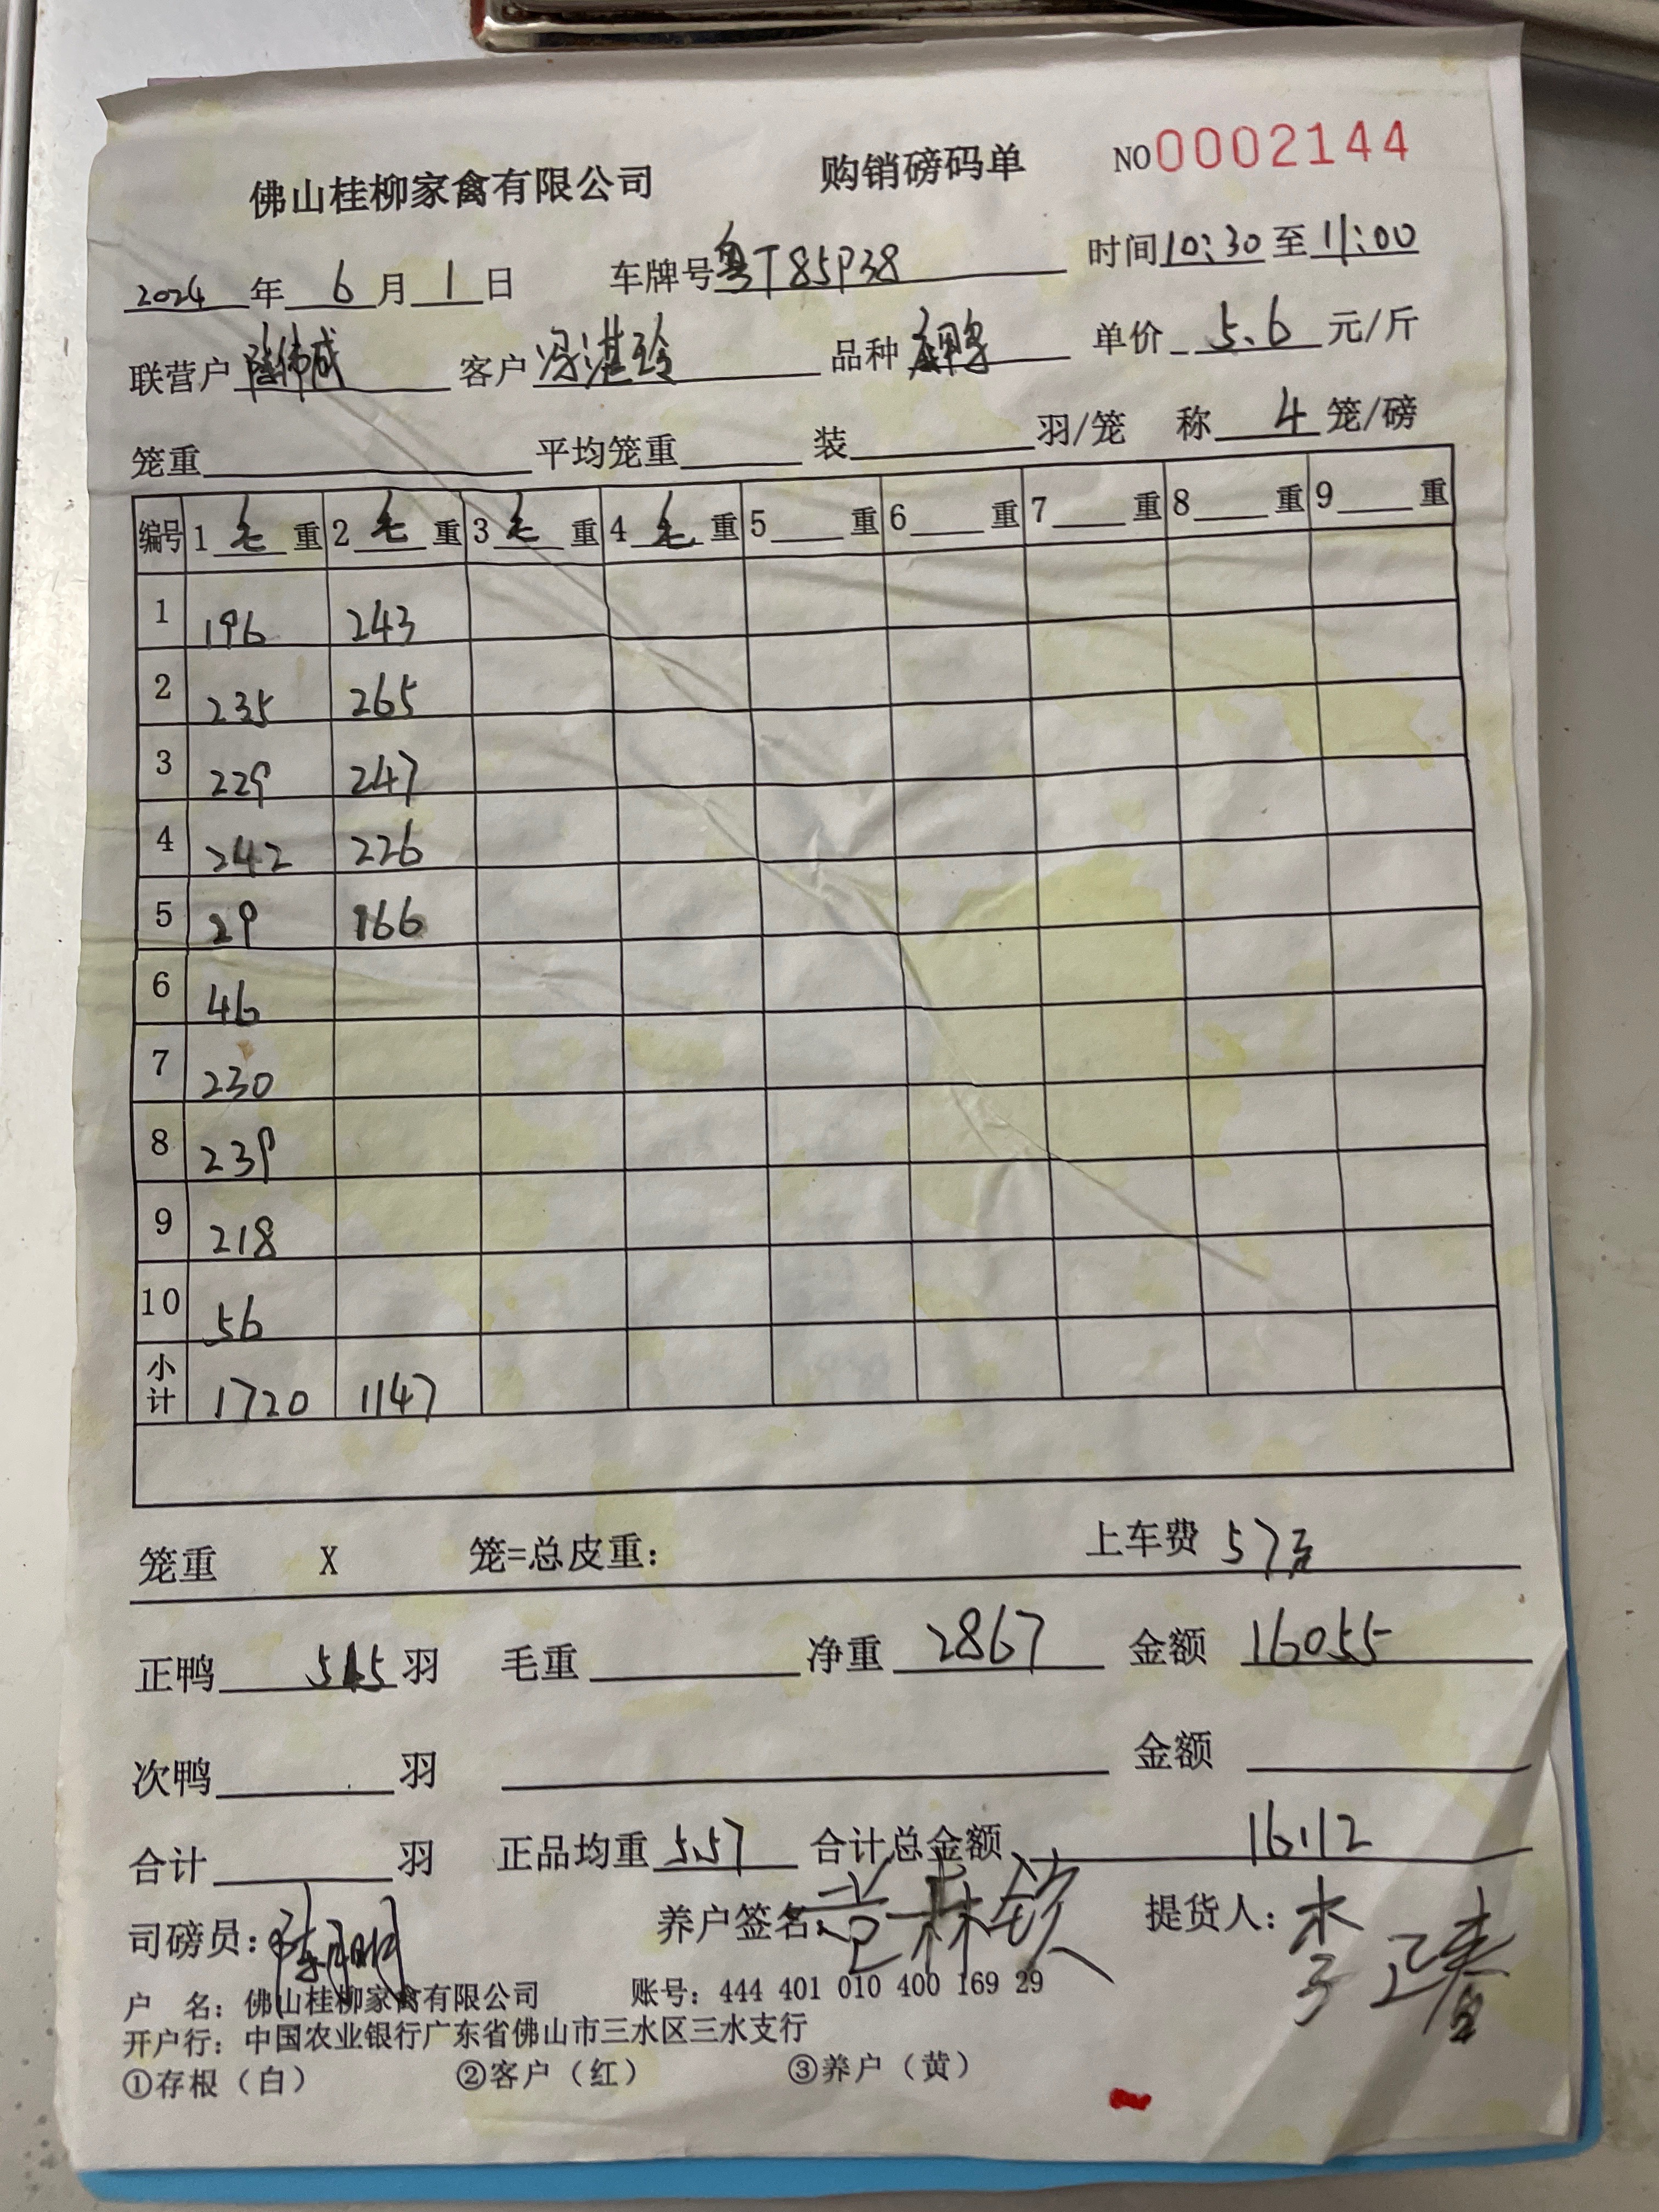 佛山桂柳家禽有限公司 购销磅码单 NO 0002144
2024 年 6 月 1 日 车牌号 粤T85P38 时间 10:30 至 11:00
联营户 客户 冯湛玲 品种 单价 5.6 元/斤
笼重 平均笼重 装 羽/笼 称 4 笼/磅
编号 1 毛 重 2 毛 重 3 毛 重 4 毛 重 5 重 6 重 7 重 8 重 9 重
1 196 243
2 235 265
3 229 247
4 242 226
5 29 166
6 46
7 230
8 239
9 218
10 56
小计 1720 1147
笼重 X 笼=总皮重: 上车费 57元
正鸭 515 羽 毛重 净重 2867 金额 16055
次鸭 羽 金额
合计 羽 正品均重 5.57 合计总金额 16112
司磅员: 养户签名 提货人: 李正春
户 名: 佛山桂柳家禽有限公司 账号: 444 401 010 400 169 29
开户行: 中国农业银行广东省佛山市三水区三水支行
①存根（白） ②客户（红） ③养户（黄）